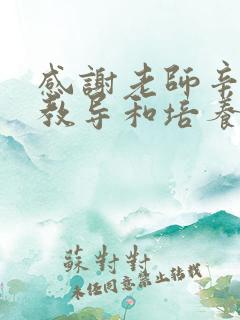 感謝老師辛
教导和培养
蘇對對
未经同意禁止转载